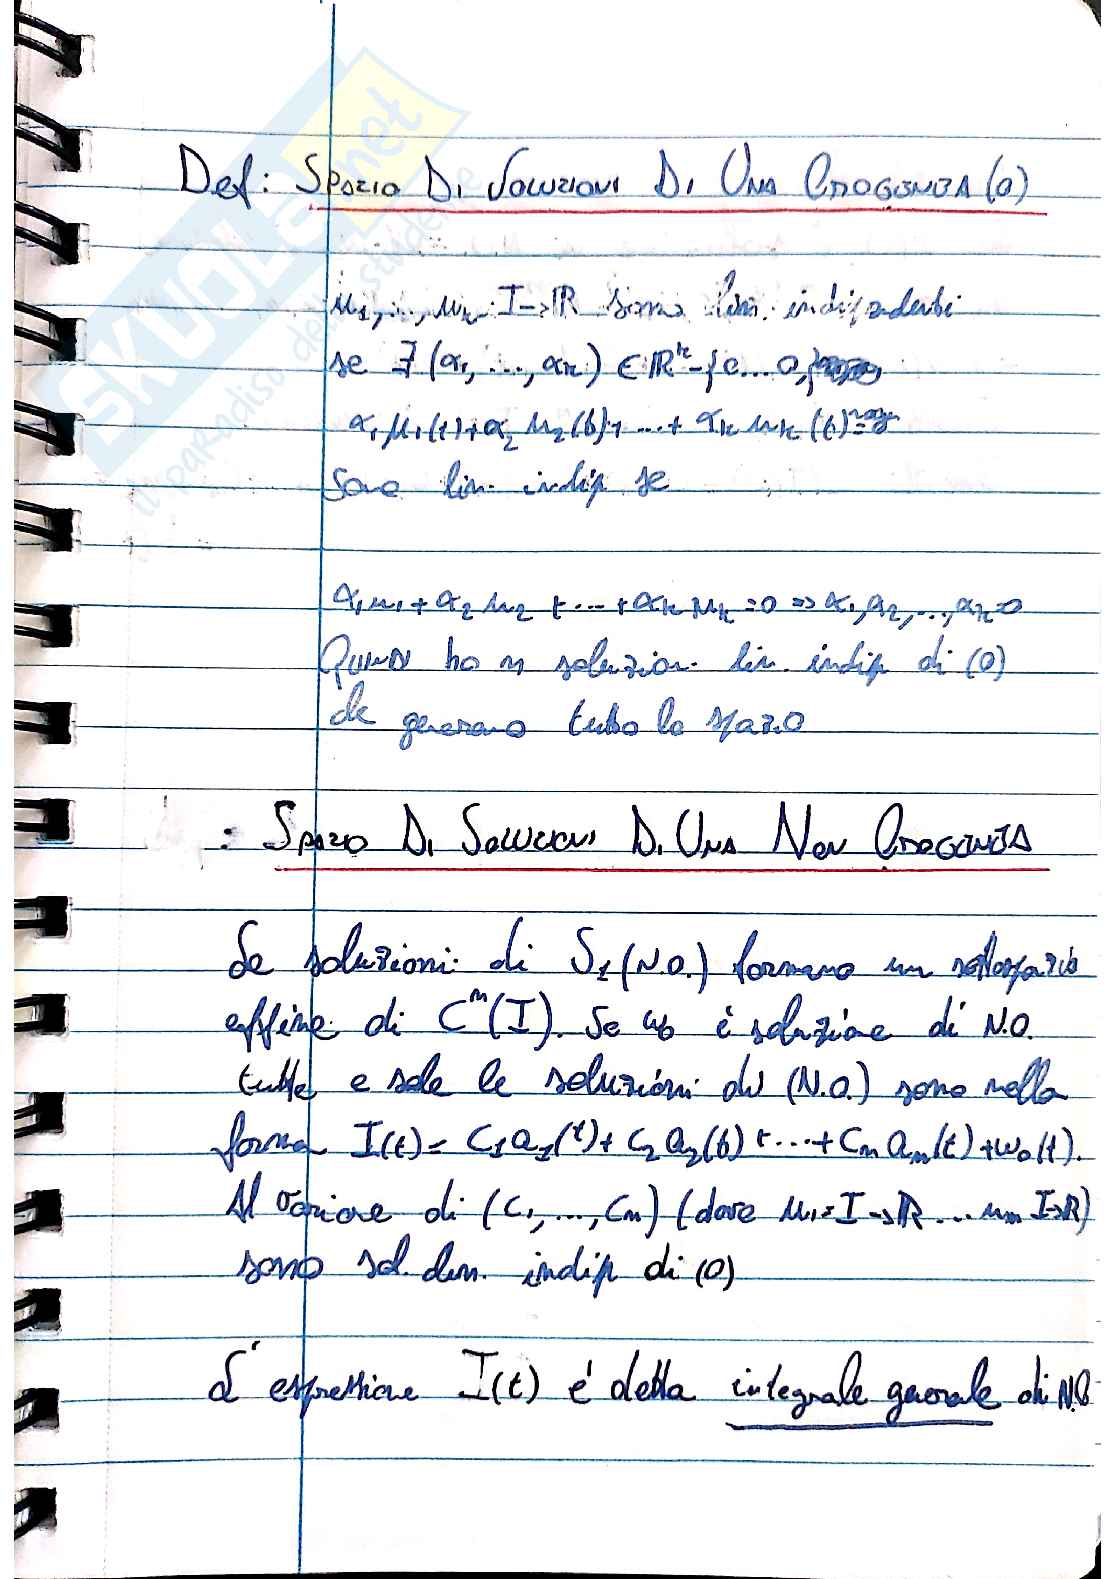 Def: Spazio Di Soluzioni Di Una Omogenea (O)
u1, ..., uk I->R sono lin. indipendenti
se ∃ (α1, ..., αk) ∈ R^k - {0...0}
α1 u1(t) + α2 u2(t) + ... + αk uk (t)
sono lin. indip se
α1 u1 + α2 u2 + ... + αk uk = 0 => α1, α2, ..., αk = 0
ho n soluzioni lin. indip di (O)
che generano tutto lo spazio
: Spazio Di Soluzioni Di Una Non Omogenea
Le soluzioni di S1 (N.O.) formano un sottospazio
affine di C^n(I). Se w0 è soluzione di N.O.
tutte e sole le soluzioni di (N.O.) sono nella
forma I(t) = C1 a1(t) + C2 a2(t) + ... + Cn an(t) + w0(t).
Al variare di (C1, ..., Cn) (dove u1 = I -> R ... un I->R)
sono sol. lin. indip di (O)
L'espressione I(t) é detta integrale generale di N.O
SKUOLA.net
il paradiso dello studente